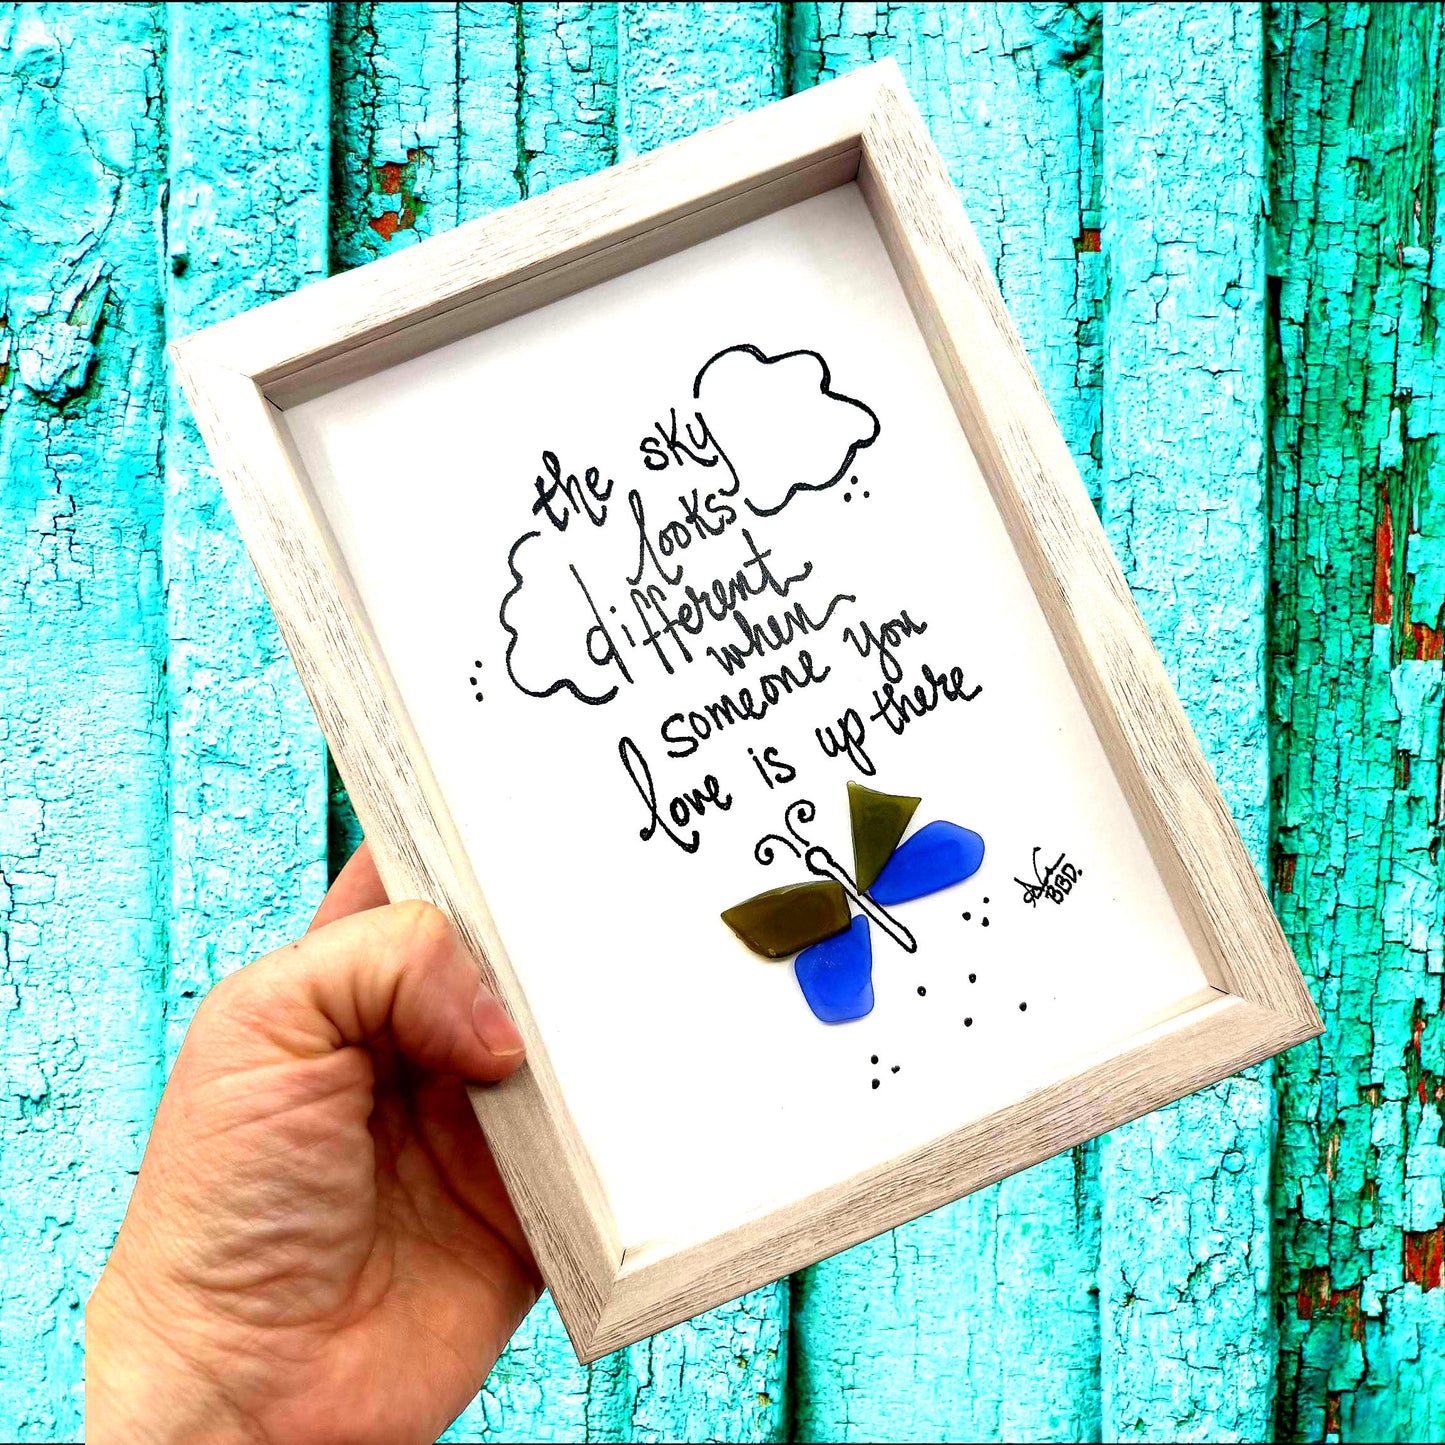 the sky
looks
different
when
someone you
love is up there
BBD.